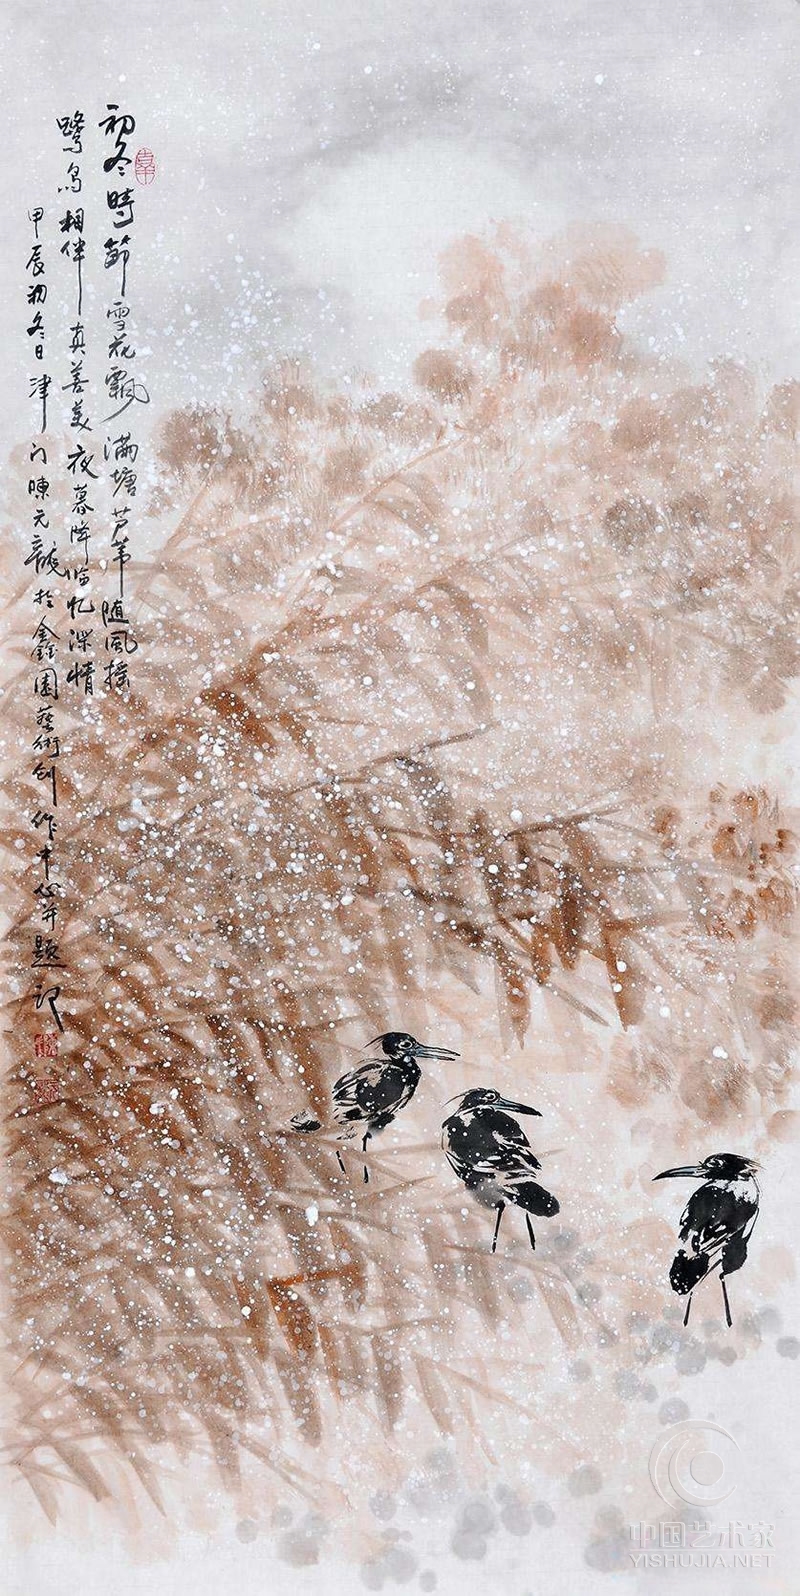 初冬時節雪花飘满塘芦苇随风摇
鹭鸟相伴真善美夜暮降临忆深情
甲辰初冬日津门陳元龍於鑫園藝術创作中心并题记
中国艺术家
YISHUJIA.NET